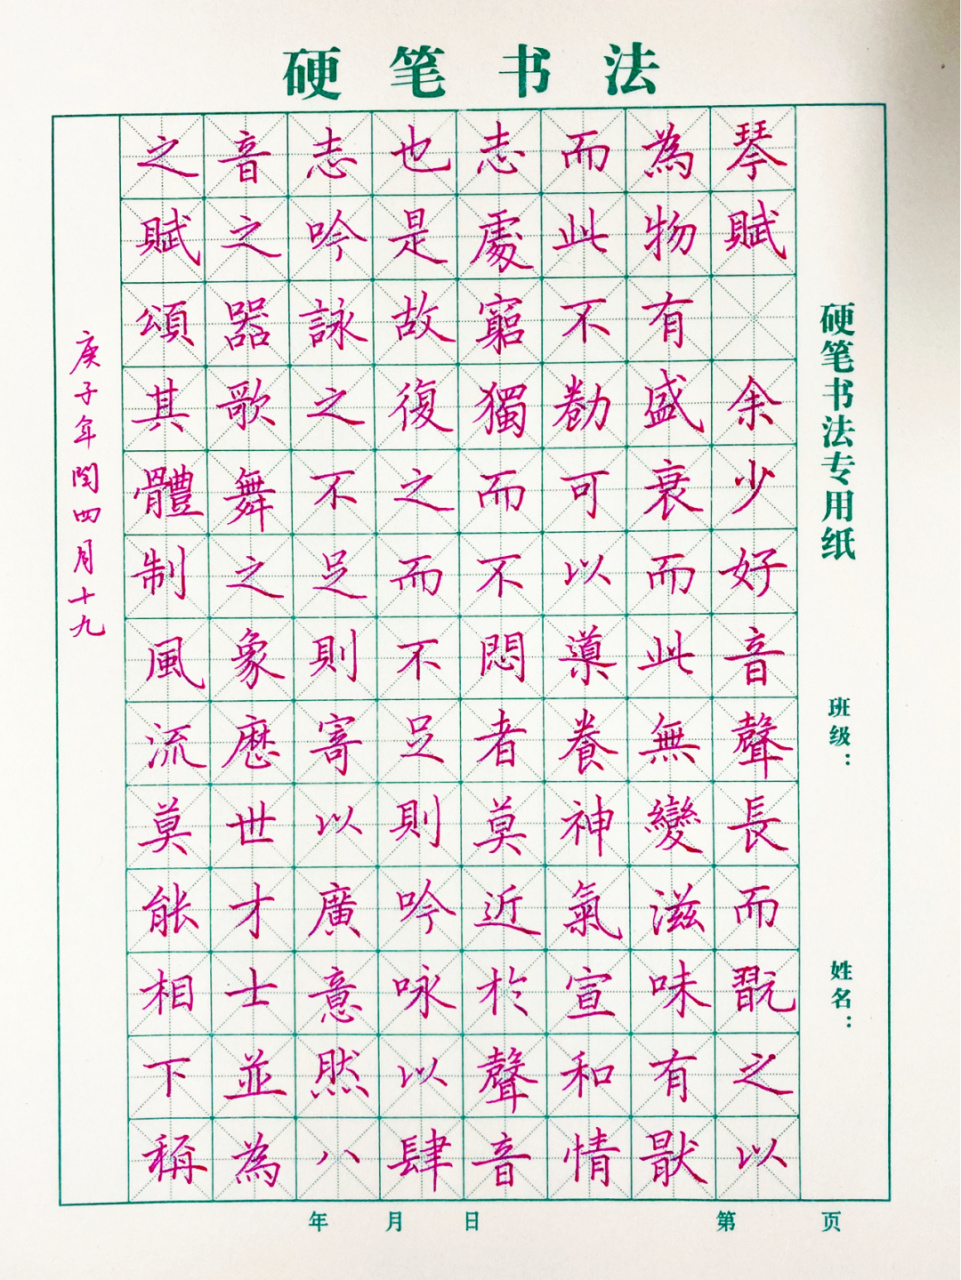 硬笔书法
琴賦 余少好音聲長而翫之以
為物有盛衰而此無變滋味有猒
而此不勌可以導養神氣宣和情
志處窮獨而不悶者莫近於聲音
也是故復之而不足則吟咏以肆
志吟詠之不足則寄以廣意然八
音之器歌舞之象歷世才士並為
之賦頌其體制風流莫能相下稱
庚子年閏四月十九
硬笔书法专用纸
班级：
姓名：
年 月 日 第 页